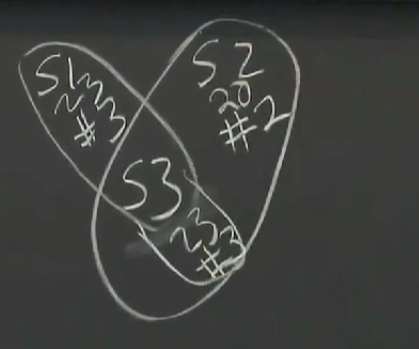 S1
23
#3
S2
20
#2
S3
23
#3